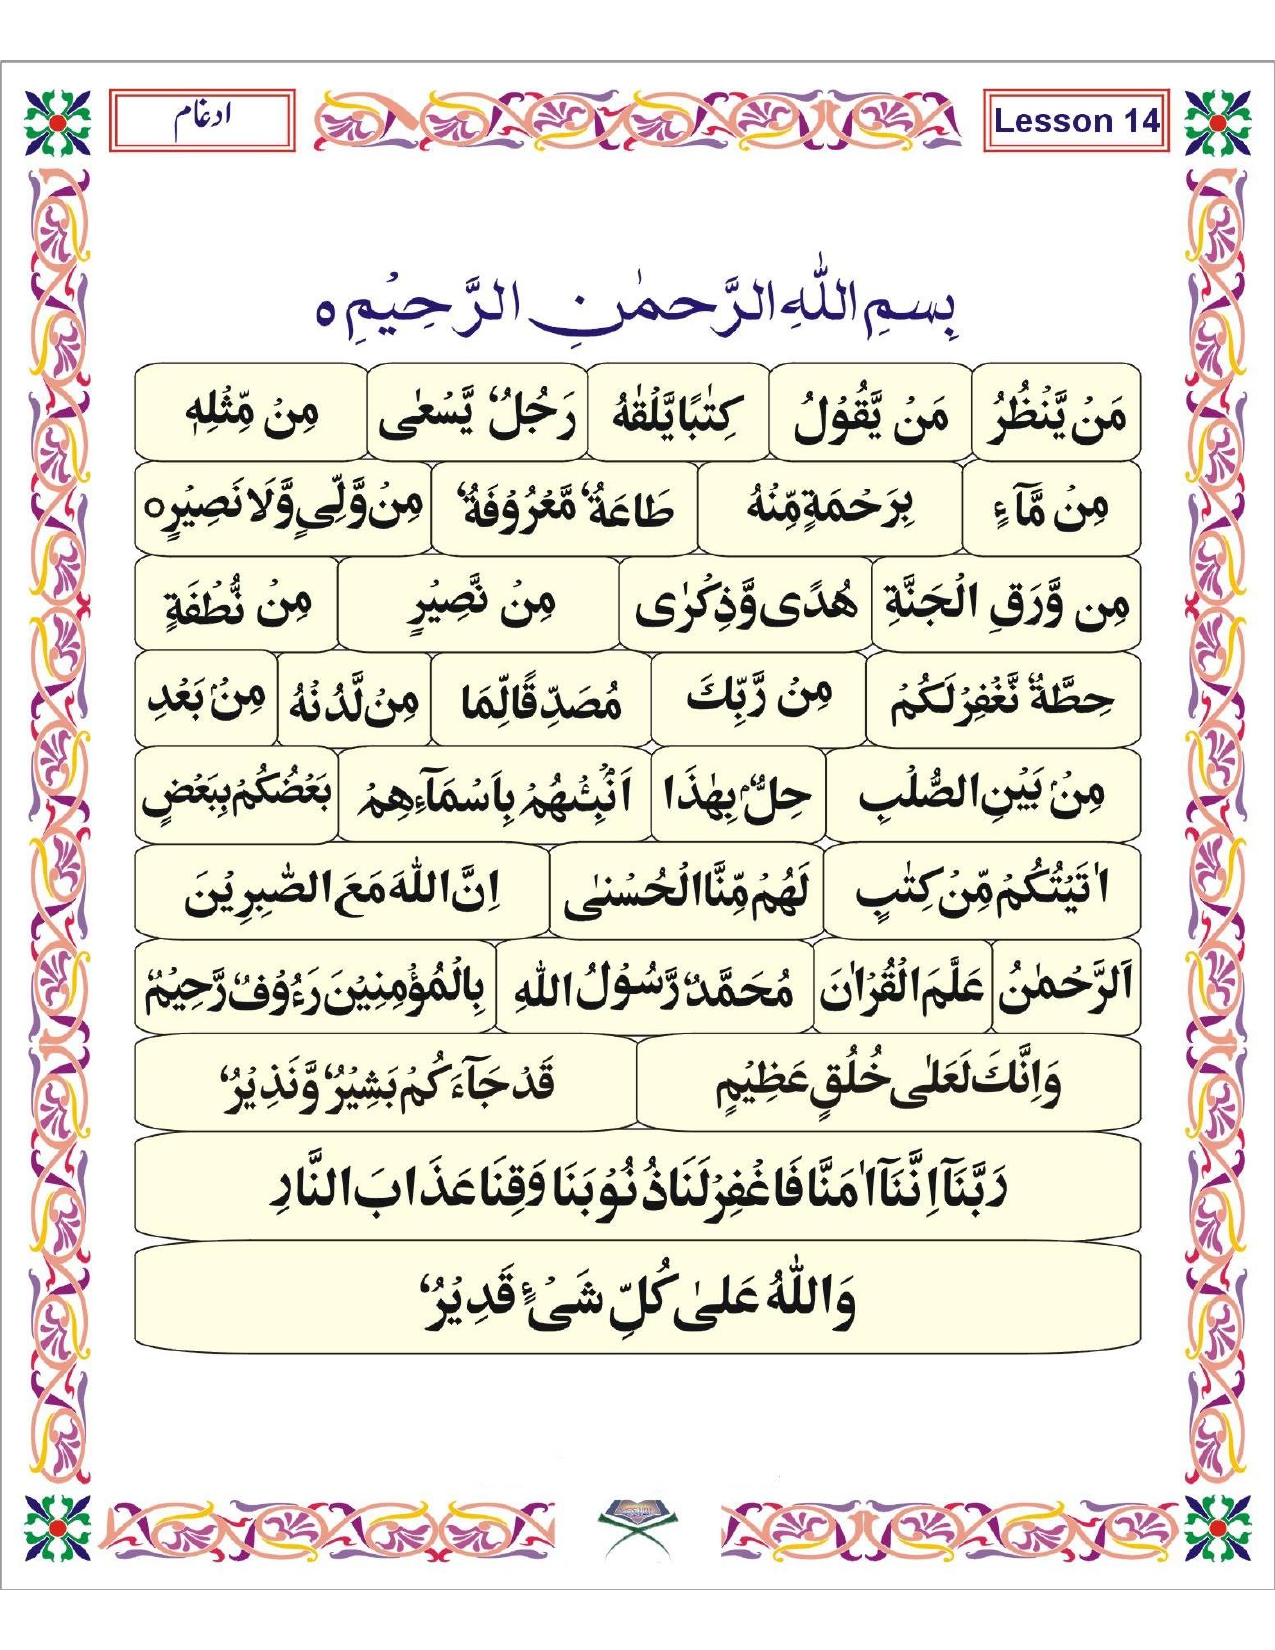 ادغام
Lesson 14
بِسمِ اللّٰهِ الرَّحمٰنِ الرَّحِيْمِ ○
مَنْ يَّنْظُرُ مَنْ يَّقُوْلُ كِتٰبًا يَّلْقٰهُ رَجُلٌ يَّسْعٰى مِنْ مِّثْلِهٖ
مِنْ مَّآءٍ بِرَحْمَةٍ مِّنْهُ طَاعَةٌ مَّعْرُوْفَةٌ مِنْ وَّلِيٍّ وَّلَا نَصِيْرٍ ○
مِن وَّرَقِ الْجَنَّةِ هُدًى وَّذِكْرٰى مِنْ نَّصِيْرٍ مِنْ نُّطْفَةٍ
حِطَّةٌ نَّغْفِرْ لَكُمْ مِنْ رَّبِّكَ مُصَدِّقًا لِّمَا مِنْ لَّدُنْهُ مِنْۢ بَعْدِ
مِنْۢ بَيْنِ الصُّلْبِ حِلٌّۢ بِهٰذَا اَنْۢبِئْهُمْ بِاَسْمَآءِهِمْ بَعْضُكُمْ بِبَعْضٍ
اٰتَيْتُكُمْ مِّنْ كِتٰبٍ لَهُمْ مِّنَّا الْحُسْنٰى اِنَّ اللّٰهَ مَعَ الصّٰبِرِيْنَ
اَلرَّحْمٰنُ عَلَّمَ الْقُرْاٰنَ مُحَمَّدٌ رَّسُوْلُ اللّٰهِ بِالْمُؤْمِنِيْنَ رَءُوْفٌ رَّحِيْمٌ
وَاِنَّكَ لَعَلٰى خُلُقٍ عَظِيْمٍ قَدْ جَآءَكُمْ بَشِيْرٌ وَّنَذِيْرٌ
رَبَّنَآ اِنَّنَآ اٰمَنَّا فَاغْفِرْ لَنَا ذُنُوْبَنَا وَقِنَا عَذَابَ النَّارِ
وَاللّٰهُ عَلىٰ كُلِّ شَىْءٍ قَدِيْرٌ